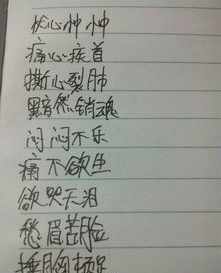 忧心忡忡
痛心疾首
撕心裂肺
黯然销魂
闷闷不乐
痛不欲生
欲哭无泪
愁眉苦脸
捶胸顿足